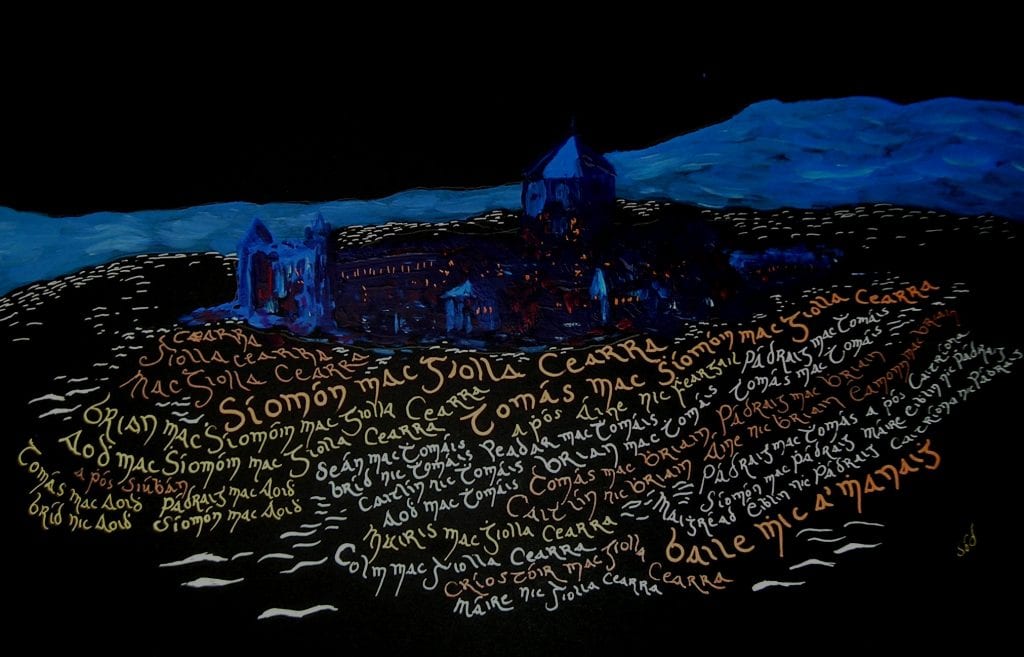 Cearra
Giolla Cearra
Mac Giolla Cearra
Síomón mac Giolla Cearra
Tomás mac Síomón mac Giolla Cearra
Brian mac Síomóin mac Giolla Cearra
Aod mac Síomóin mac Giolla Cearra
Tomás mac Aoid
a pós Siúbán
Bríd nic Aoid
Pádraig mac Aoid
Síomón mac Aoid
a pós Áine nic Feargail
Pádraig mac Tomáis
Seán mac Tomáis
Peadar mac Tomáis
Tomás mac Tomáis
Bríd nic Tomáis
Brian mac Tomáis
Caitlín nic Tomáis
Aod mac Tomáis
Tomás mac Briain
Pádraig mac Briain
Eamonn mac Briain
Caitlín nic Briain
Áine nic Briain
Pádraig mac Tomás a pós Caitríona
Síomón mac Pádraig
Máire Eiblín nic Pádraig
Mairéad Eiblín nic Pádraig
Caitríona nic Pádraig
Muiris mac Giolla Cearra
Colm mac Giolla Cearra
Críostóir mac Giolla Cearra
Máire nic Giolla Cearra
Baile Mic a' Manaig